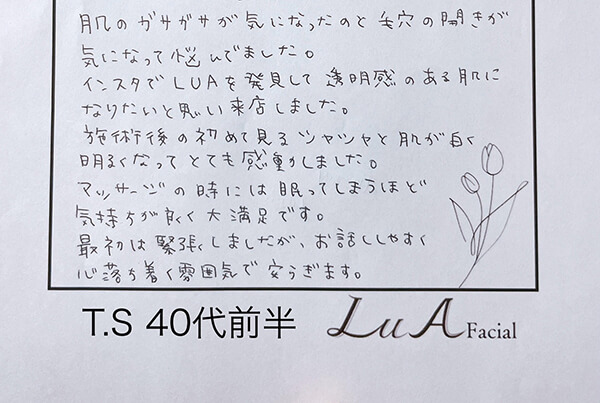 肌のガサガサが気になったのと毛穴の開きが
気になって悩んでました。
インスタでLUAを発見して透明感のある肌に
なりたいと思い来店しました。
施術後の初めて見るツヤツヤと肌が白く
明るくなってとても感動しました。
マッサージの時には眠ってしまうほど
気持ちが良く大満足です。
最初は緊張しましたが、お話ししやすく
心落ち着く雰囲気で安らぎます。
T.S 40代前半 LuA Facial